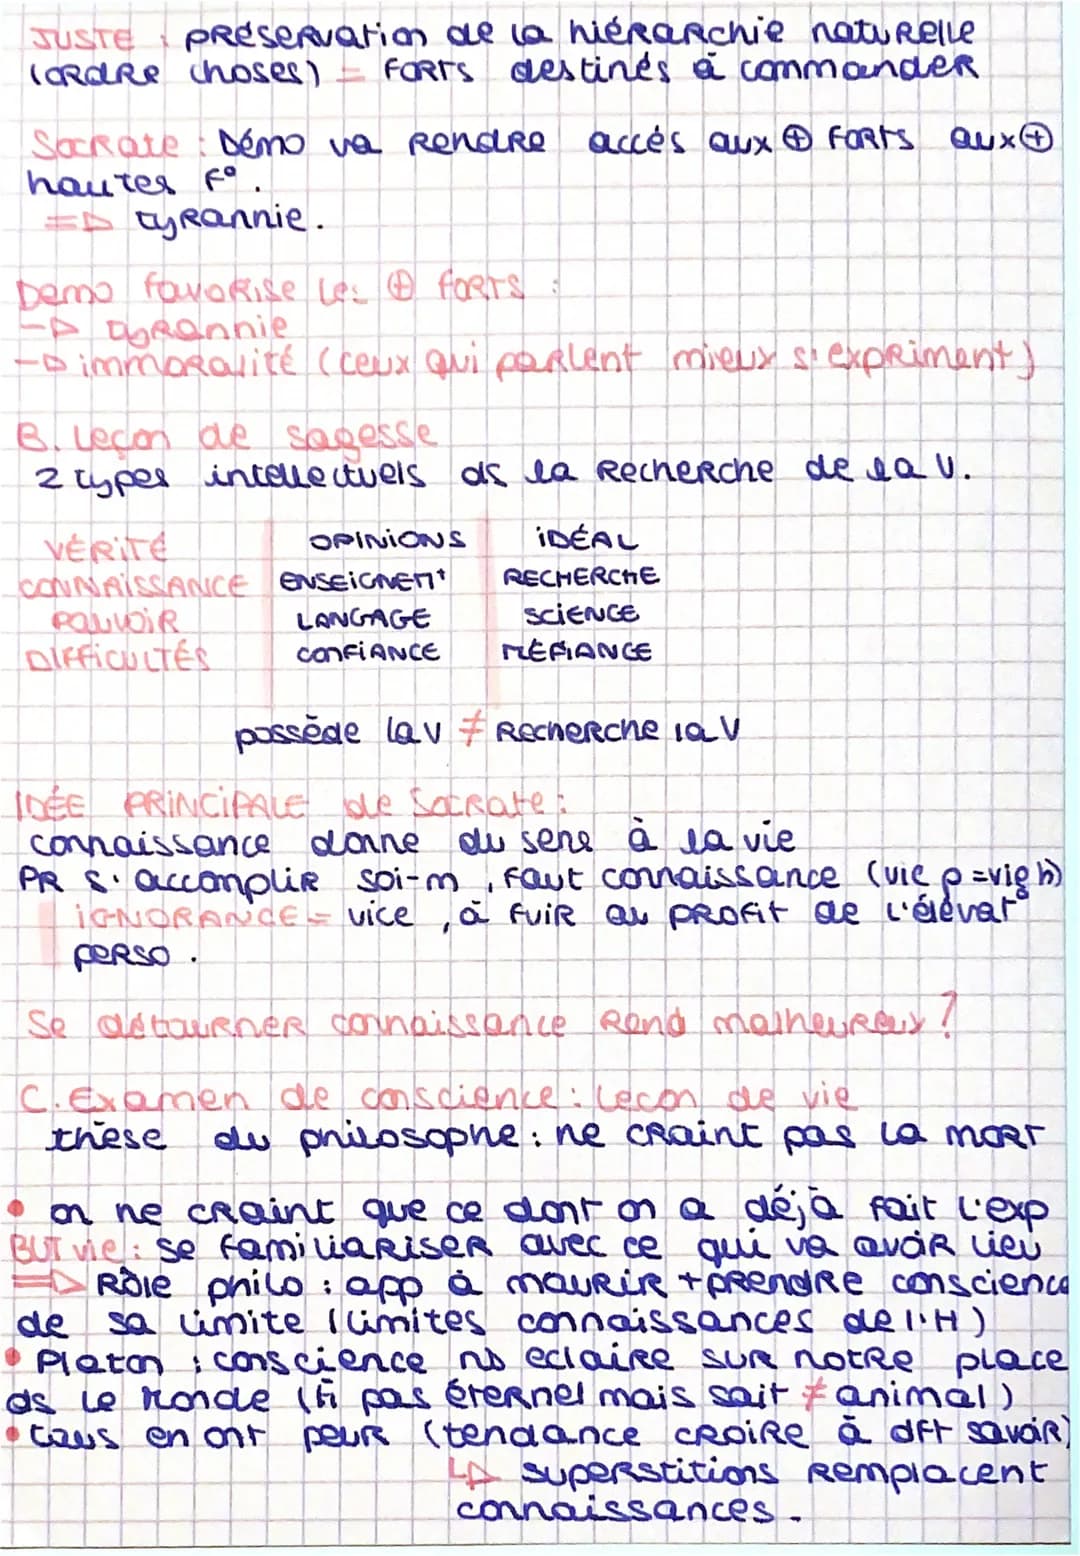 JUSTE : PRÉSERVATION de la hiérarchie naturelle
(ordre choses) = forts destinés à commander
Socrate : Démo va rendre accès aux ⊕ forts aux ⊕
hautes f°.
=> tyrannie.
Démo favorise les ⊕ forts :
-> tyrannie
-> immoralité (ceux qui parlent mieux s'expriment)
B. Leçon de sagesse
2 types intellectuels ds la recherche de la V.
VÉRITÉ OPINIONS IDÉAL
CONNAISSANCE ENSEIGNEMt RECHERCHE
POUVOIR LANGAGE SCIENCE
DIFFICULTÉS CONFIANCE MÉFIANCE
possède la V ≠ Recherche la V
IDÉE PRINCIPALE de Socrate :
connaissance donne du sens à la vie
PR s'accomplir soi-m, faut connaissance (vie p = vie h)
IGNORANCE = vice, à fuir au profit de l'élévat°
perso.
Se détourner connaissance rend malheureux ?
C. Examen de conscience : leçon de vie
thèse du philosophe : ne craint pas la mort
• on ne craint que ce dont on a déjà fait l'exp
BUT vie : se familiariser avec ce qui va avoir lieu
=> Rôle philo : app à mourir + prendre conscience
de sa limite (limites connaissances de l'H)
• Platon : conscience ns eclaire sur notre place
ds le monde (H pas éternel mais sait ≠ animal)
• tous en ont peur (tendance croire à dft savoir)
↳ superstitions remplacent
connaissances.